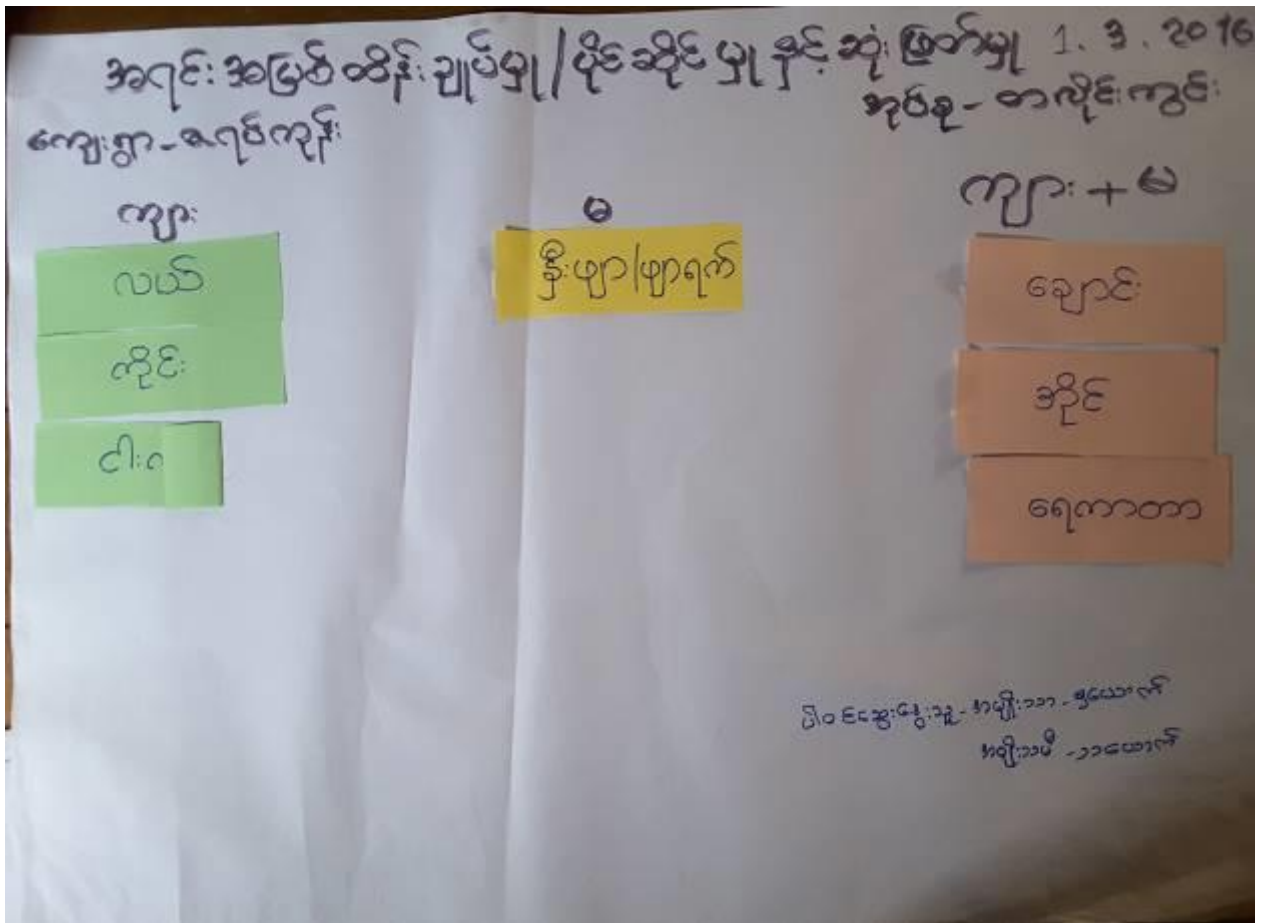 အရင်းအမြစ်ထိန်းချုပ်မှု/ပိုင်ဆိုင်မှုနှင့်ဆုံးဖြတ်မှု 1.3.2016
ကျေးရွာ-ဇရပ်ကုန်း
အုပ်စု-တလိုင်းကွင်း
ကျား
မ
ကျား+မ
လယ်
ကိုင်း
ငါး
နှီးဖျာ/ဖျာရက်
ချောင်း
အိုင်
ရေကာတာ
ပါဝင်ဆွေးနွေးသူ-အမျိုးသား-၅ယောက်
အမျိုးသမီ-၁၁ယောက်